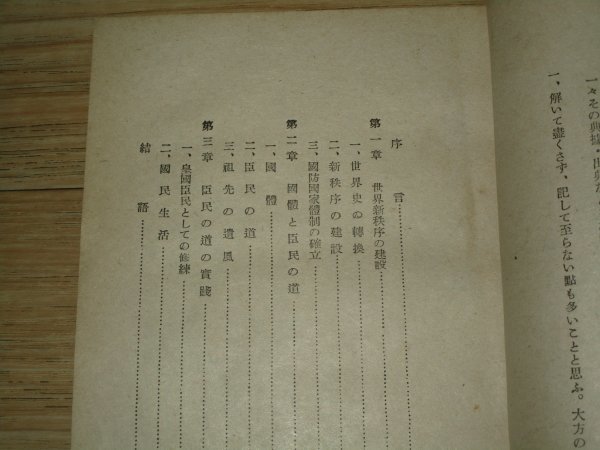 一々その典據・出典な
一、解いて盡くさず、記して至らない點も多いことと思ふ。大方の
序言
第一章 世界新秩序の建設
一、世界史の轉換
二、新秩序の建設
三、國防國家體制の確立
第二章 國體と臣民の道
一、國體
二、臣民の道
三、祖先の遺風
第三章 臣民の道の實踐
一、皇國臣民としての修練
二、國民生活
結語